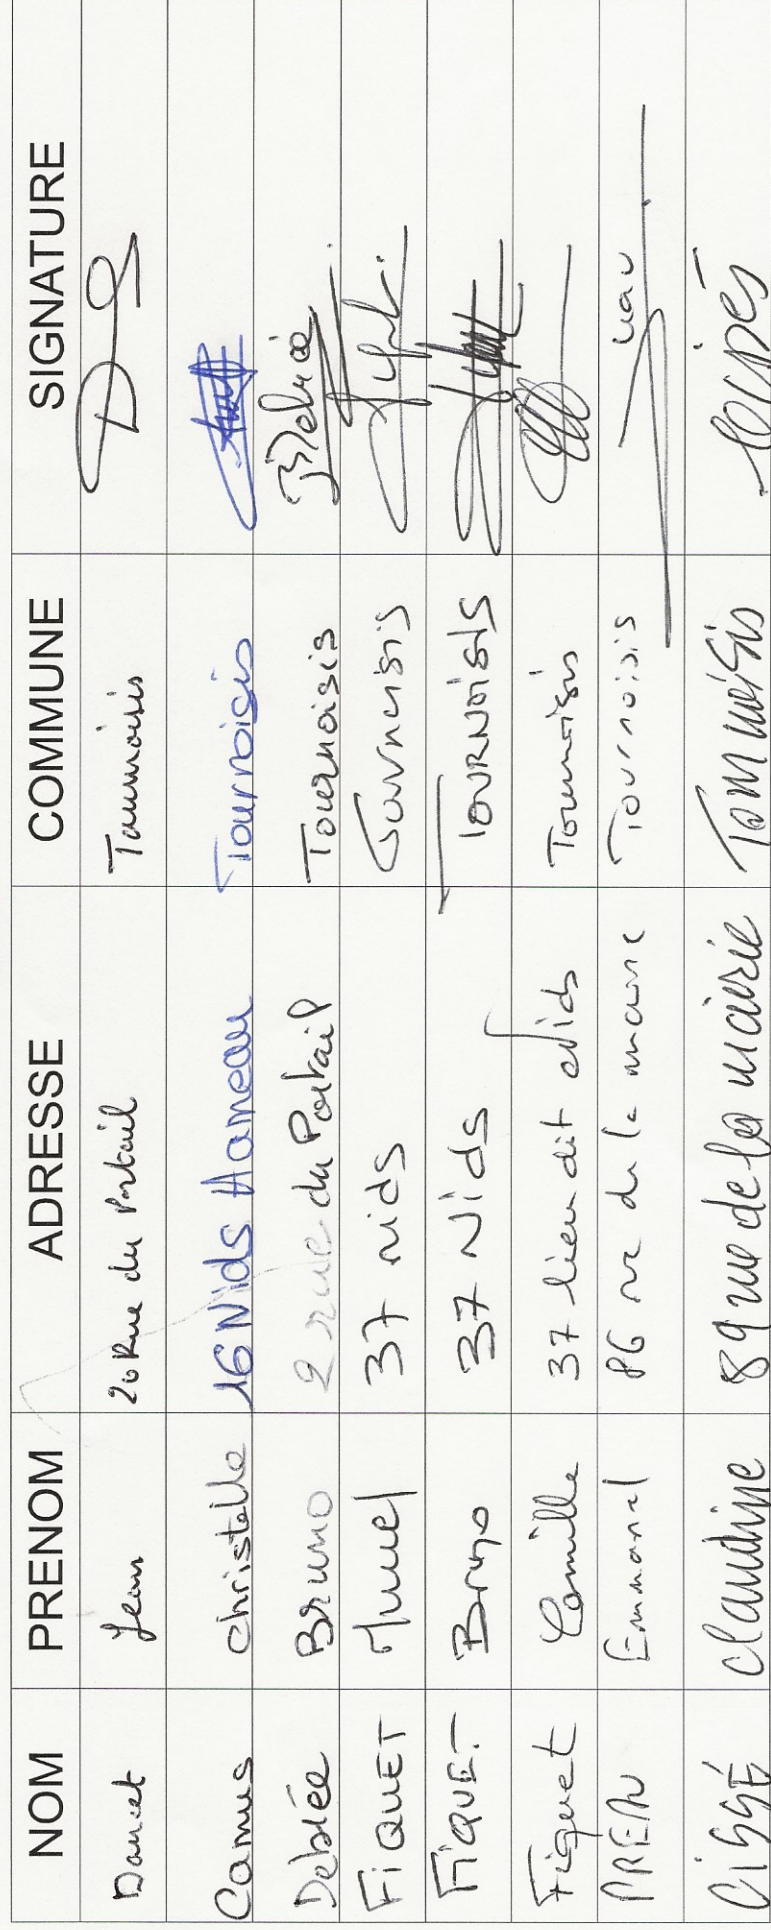 NOM PRENOM ADRESSE COMMUNE SIGNATURE
Jean 26 Rue du Portail Tournoisis
Camus christelle 16 Nids Hameau Tournoisis
Debrée Bruno 2 rue du Portail Tournoisis Debrée
FiQUET 37 nids Tournoisis
FiQUET Bruno 37 Nids TOURNOISIS
Fiquet Camille 37 lieu dit Nids Tournoisis
PREAU Emmanuel 86 rue de la mairie Tournoisis
CISSÉ claudine 89 rue de la mairie Tournoisis